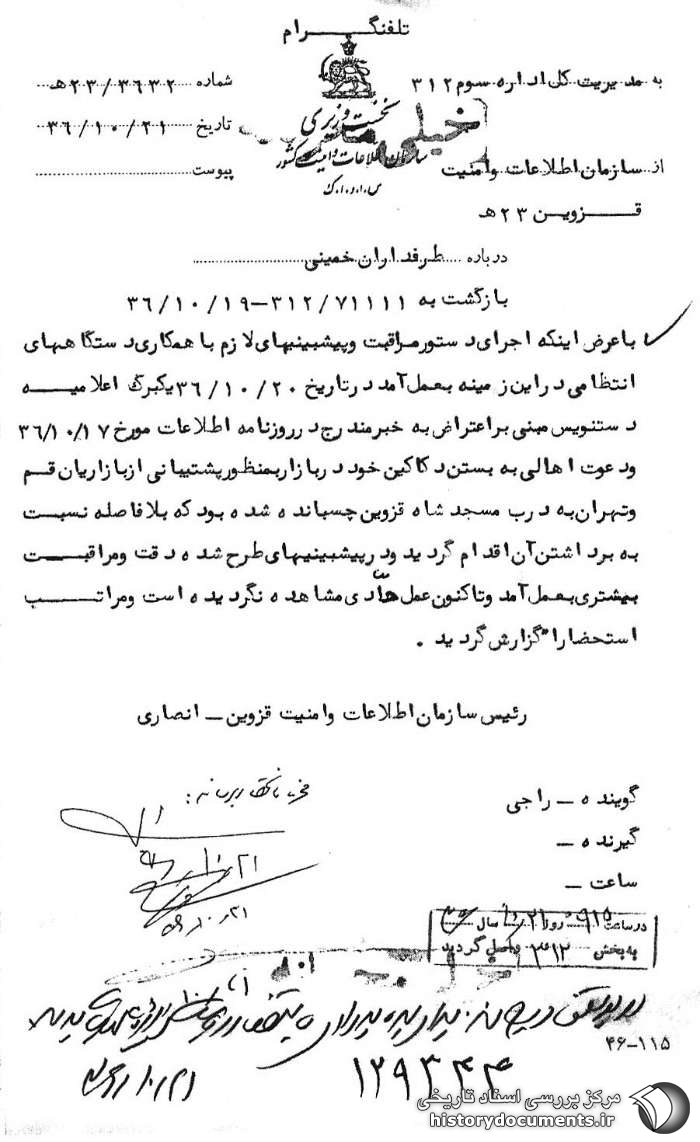 تلفنگرام
به مدیریت کل اداره سوم ۳۱۲
شماره ۲۳/۳۶۳۲هـ
نخست وزیری
خیلی
تاریخ ۳۶/۱۰/۲۱
سازمان اطلاعات و امنیت کشور
از سازمان اطلاعات و امنیت
پیوست
س.ا.و.ا.ک
قزوین ۲۳هـ
درباره طرفداران خمینی
بازگشت به ۷۱۱۱۱/۳۱۲-۳۶/۱۰/۱۹
باعرض اینکه اجرای دستور مراقبت و پیشبینیهای لازم با همکاری دستگاههای
انتظامی در این زمینه بعمل آمد در تاریخ ۳۶/۱۰/۲۰ یکبرگ اعلامیه
دستنویس مبنی بر اعتراض به خبر مندرج در روزنامه اطلاعات مورخ ۳۶/۱۰/۱۷
و دعوت اهالی به بستن دکاکین خود در بازار بمنظور پشتیبانی از بازاریان قم
و تهران به درب مسجد شاه قزوین چسبانده شده بود که بلافاصله نسبت
به برداشتن آن اقدام گردید و در پیشبینیهای طرح شده دقت و مراقبت
بیشتری بعمل آمد و تاکنون عمل حادّی مشاهده نگردیده است و مراتب
استحضاراً گزارش گردید .
رئیس سازمان اطلاعات و امنیت قزوین ــ انصاری
گوینده ــ راجی
گیرنده ــ
ساعت ــ
۲۱ر۱۰ر۳۶
در ساعت ۹۱۵ روز ۲۱ سال ۳۶
به بخش ۳۱۲ واصل گردید
۴۶-۱۱۵
۱۲۹۳۴۴
۲۱ر۱۰ر۳۶
مرکز بررسی اسناد تاریخی
historydocuments.ir